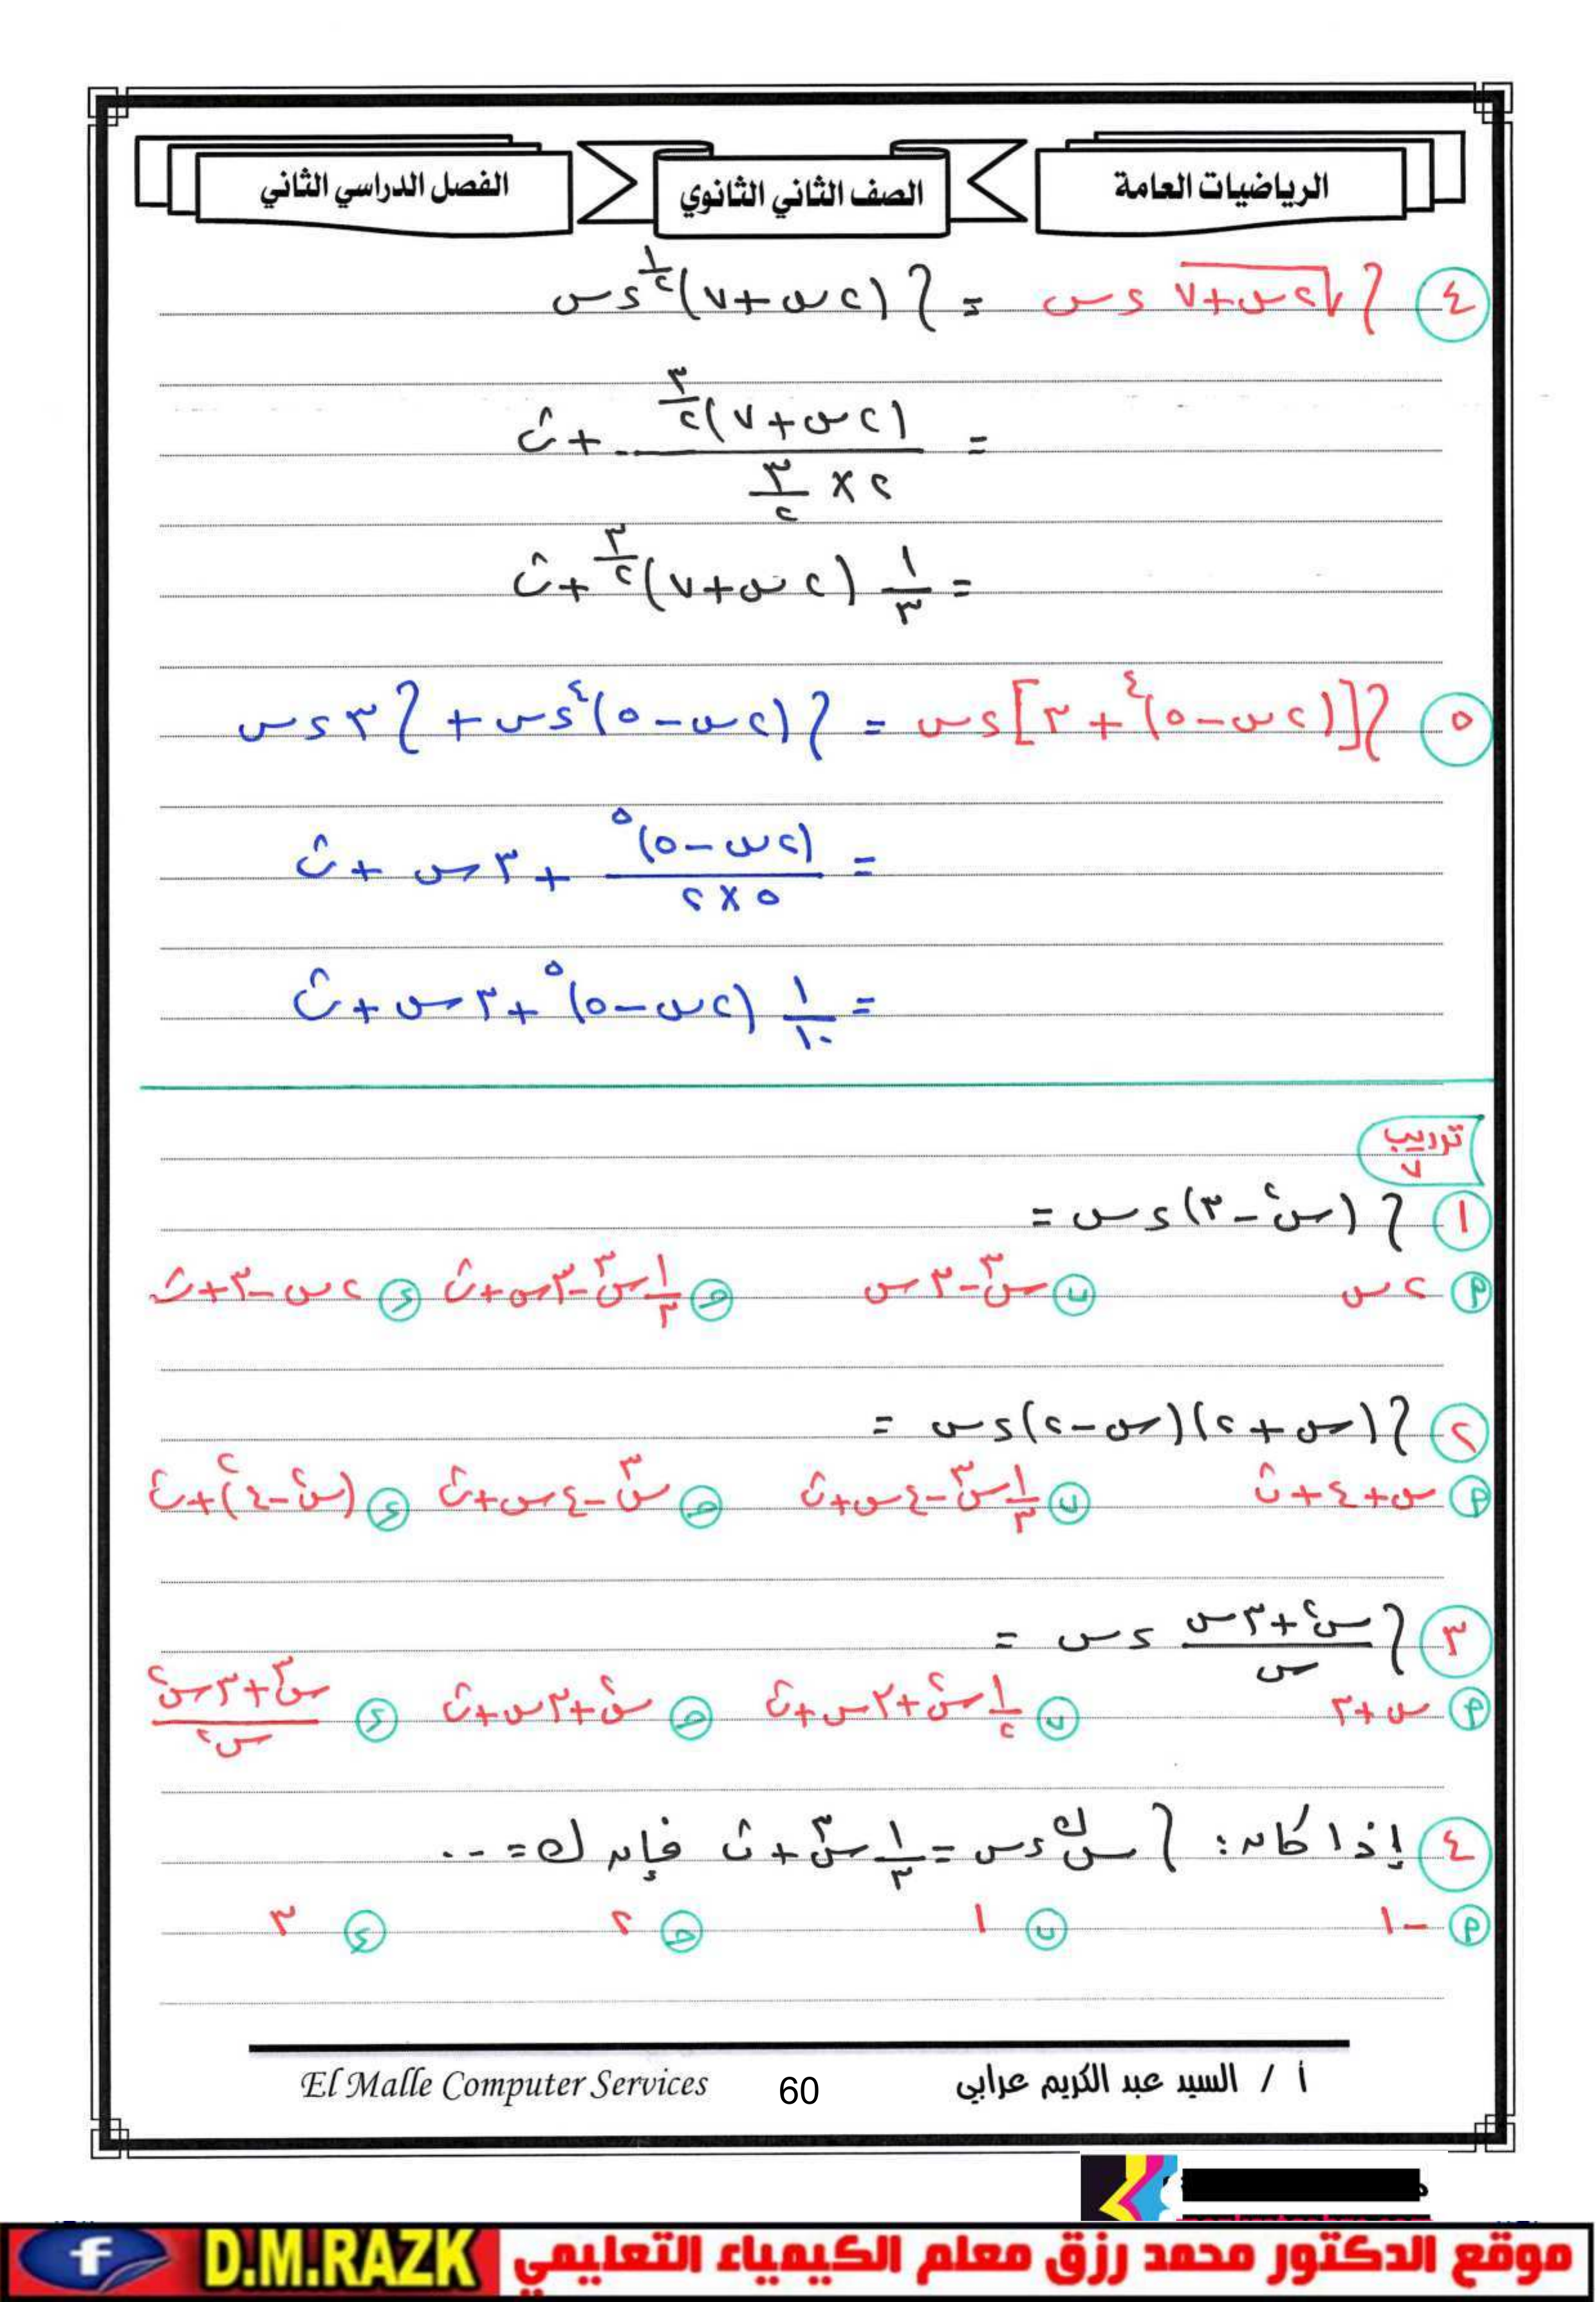 الرياضيات العامة الصف الثاني الثانوي الفصل الدراسي الثاني
٤ ∫ √(٢س+٧) ءس = ∫ (٢س+٧)^(١/٢) ءس
= (٢س+٧)^(٣/٢) / (٢×٣/٢) + ث
= ١/٣ (٢س+٧)^(٣/٢) + ث
٥ ∫ [(٢س-٥)^٤ + ٣] ءس = ∫ (٢س-٥)^٤ ءس + ∫ ٣ءس
= (٢س-٥)^٥ / (٥×٢) + ٣س + ث
= ١/١٠ (٢س-٥)^٥ + ٣س + ث
تدريب ٧
١ ∫ (س^٢-٣) ءس =
أ ٢س ب س^٣-٣س ح ١/٣ س^٣-٣س+ث ء ٢س-٣+ث
٢ ∫ (س+٢)(س-٢) ءس =
أ س+٤+ث ب ١/٣ س^٣-٤س+ث ح س^٣-٤س+ث ء (س^٢-٤)^٢+ث
٣ ∫ (س^٢+٣س)/س ءس =
أ س+٣ ب ١/٢ س^٢+٣س+ث ح س^٢+٣س+ث ء (س^٣+٣س^٢)/س^٢
٤ إذا كان: ∫ س^ك ءس = ١/٣ س^٣+ث فإن ك= ...
أ -١ ب ١ ح ٢ ء ٣
أ / السيد عبد الكريم عرابي 60 El Malle Computer Services
موقع الدكتور محمد رزق معلم الكيمياء التعليمي D.M.RAZK f